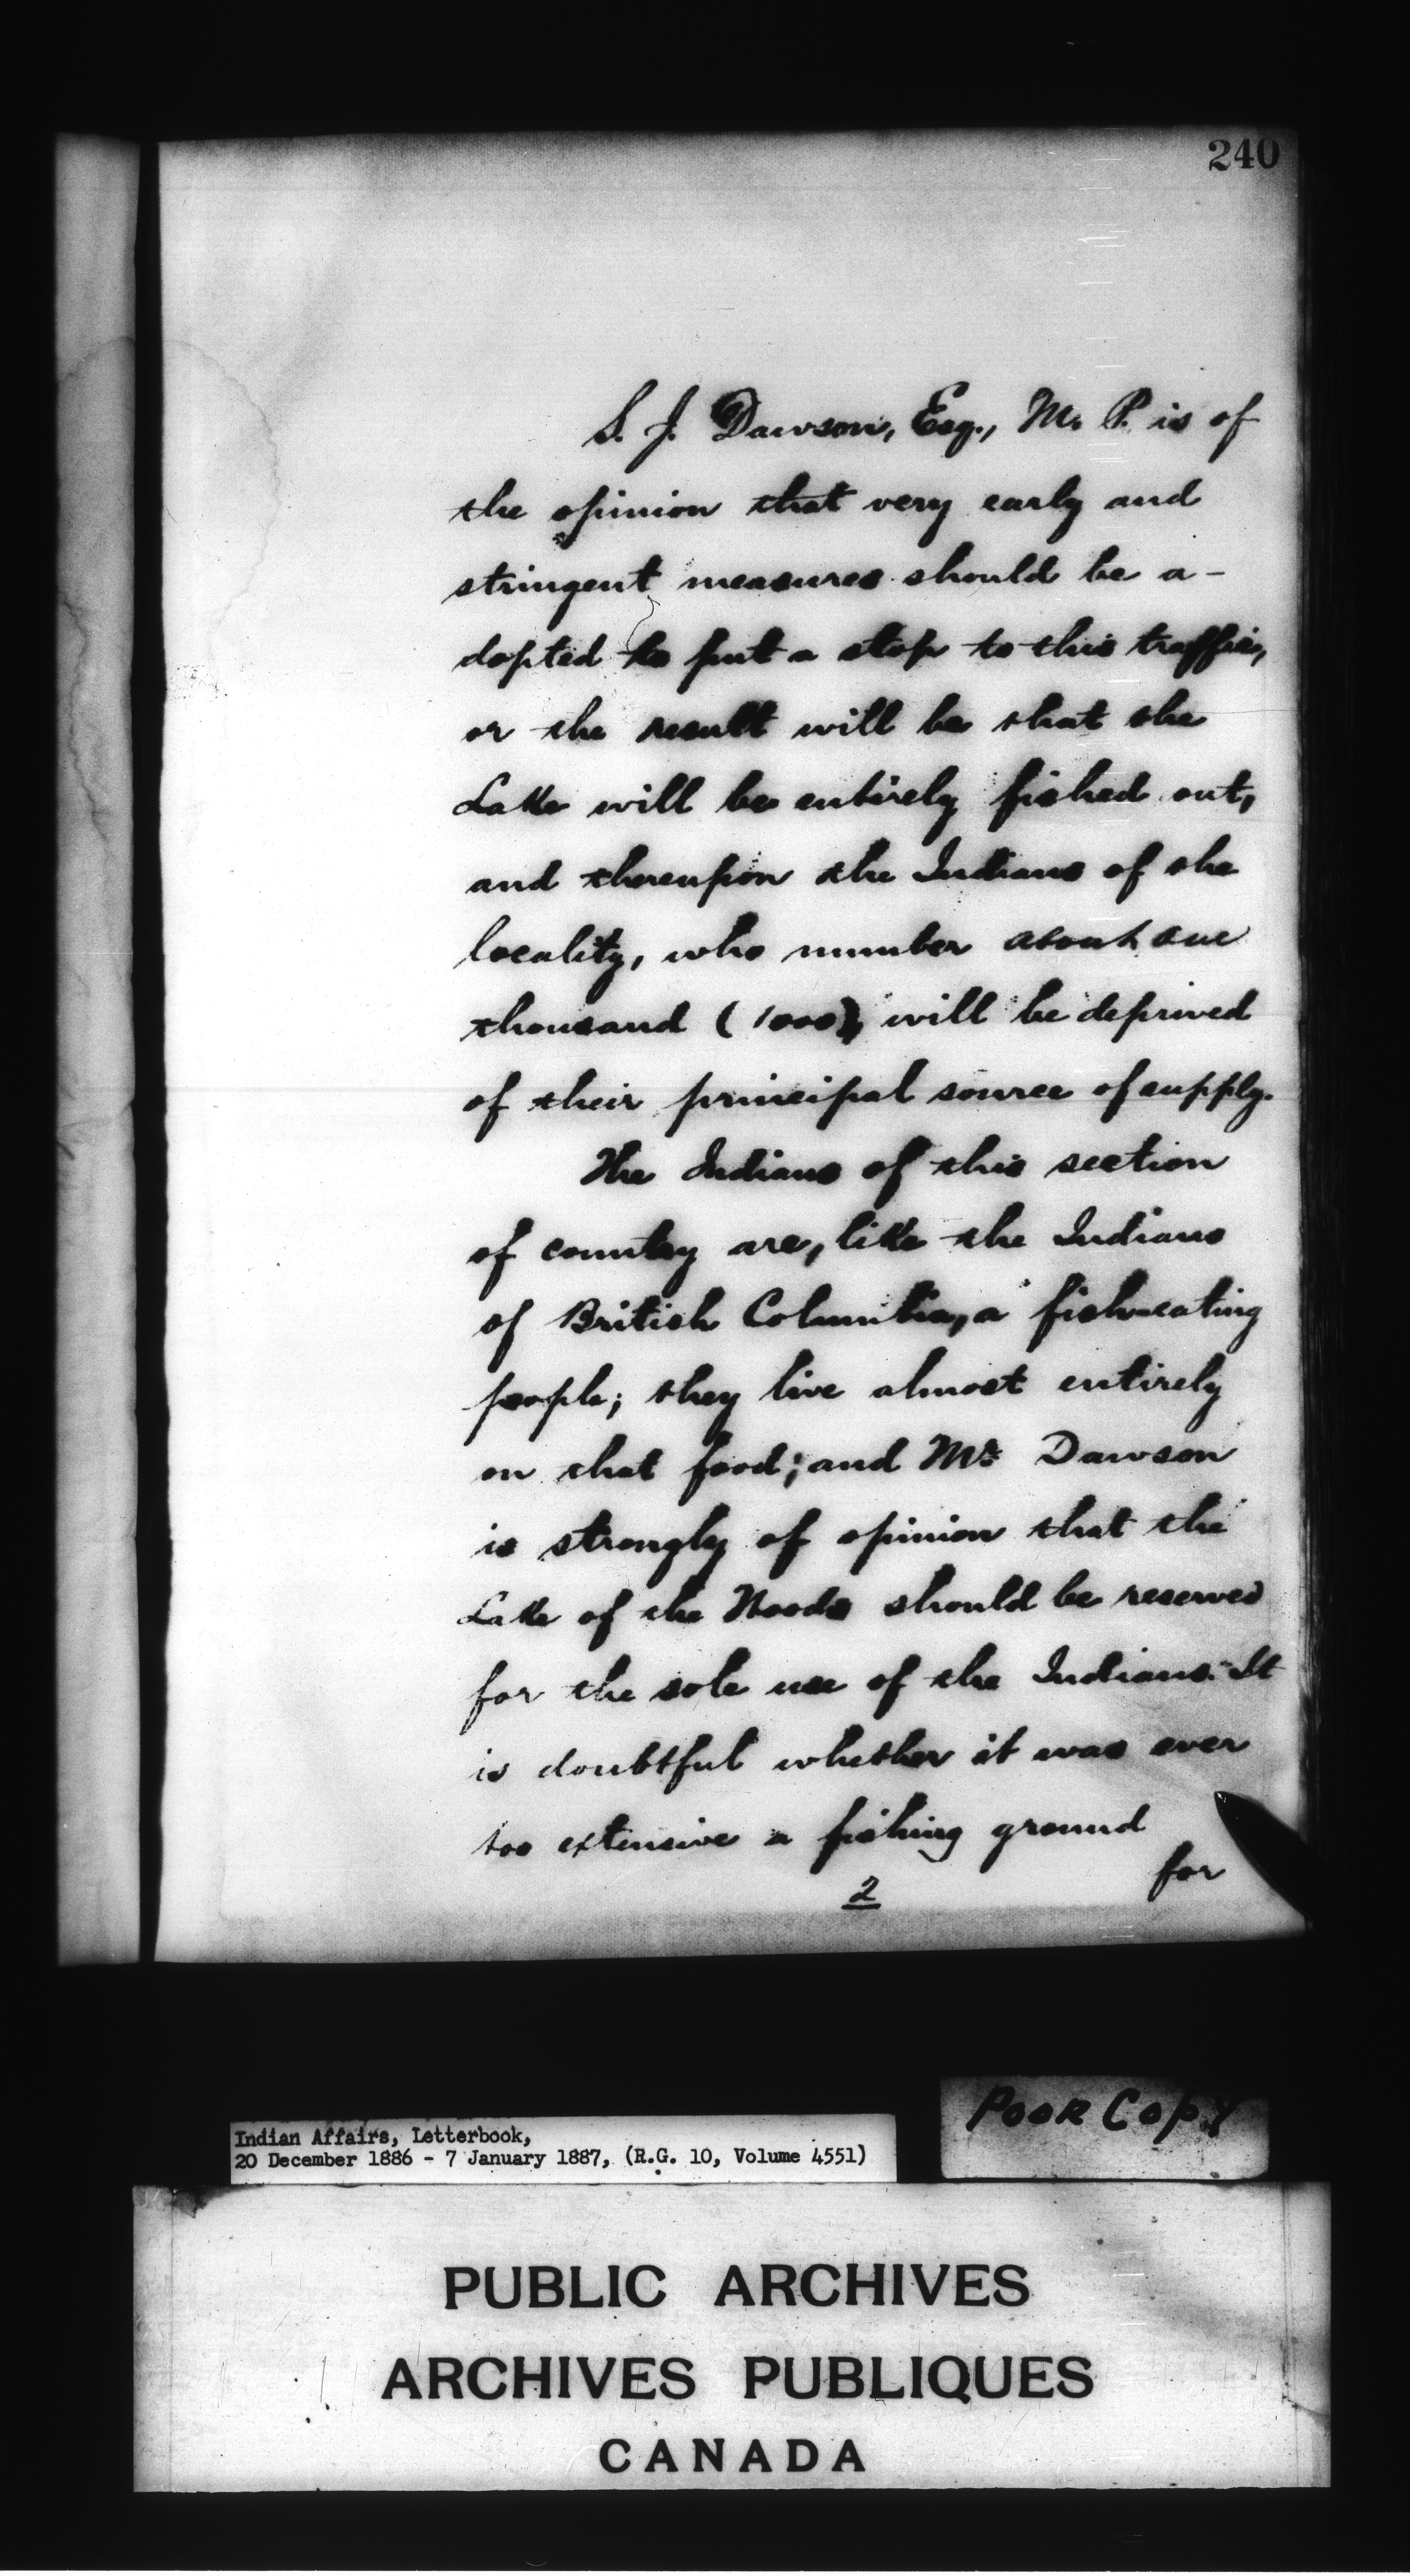 240
S. J. Dawson, Esq., M. P. is of
the opinion that very early and
stringent measures should be a-
dopted to put a stop to this traffic,
or the result will be that the
Lake will be entirely fished out,
and thereupon the Indians of the
locality, who number about one
thousand (1000), will be deprived
of their principal source of supply.
The Indians of this section
of country are, like the Indians
of British Columbia, a fish-eating
people; they live almost entirely
on that food; and Mr. Dawson
is strongly of opinion that the
Lake of the Woods should be reserved
for the sole use of the Indians. It
is doubtful whether it was ever
too extensive a fishing ground
for
2
Poor Copy
Indian Affairs, Letterbook,
20 December 1886 - 7 January 1887, (R.G. 10, Volume 4551)
PUBLIC ARCHIVES
ARCHIVES PUBLIQUES
CANADA